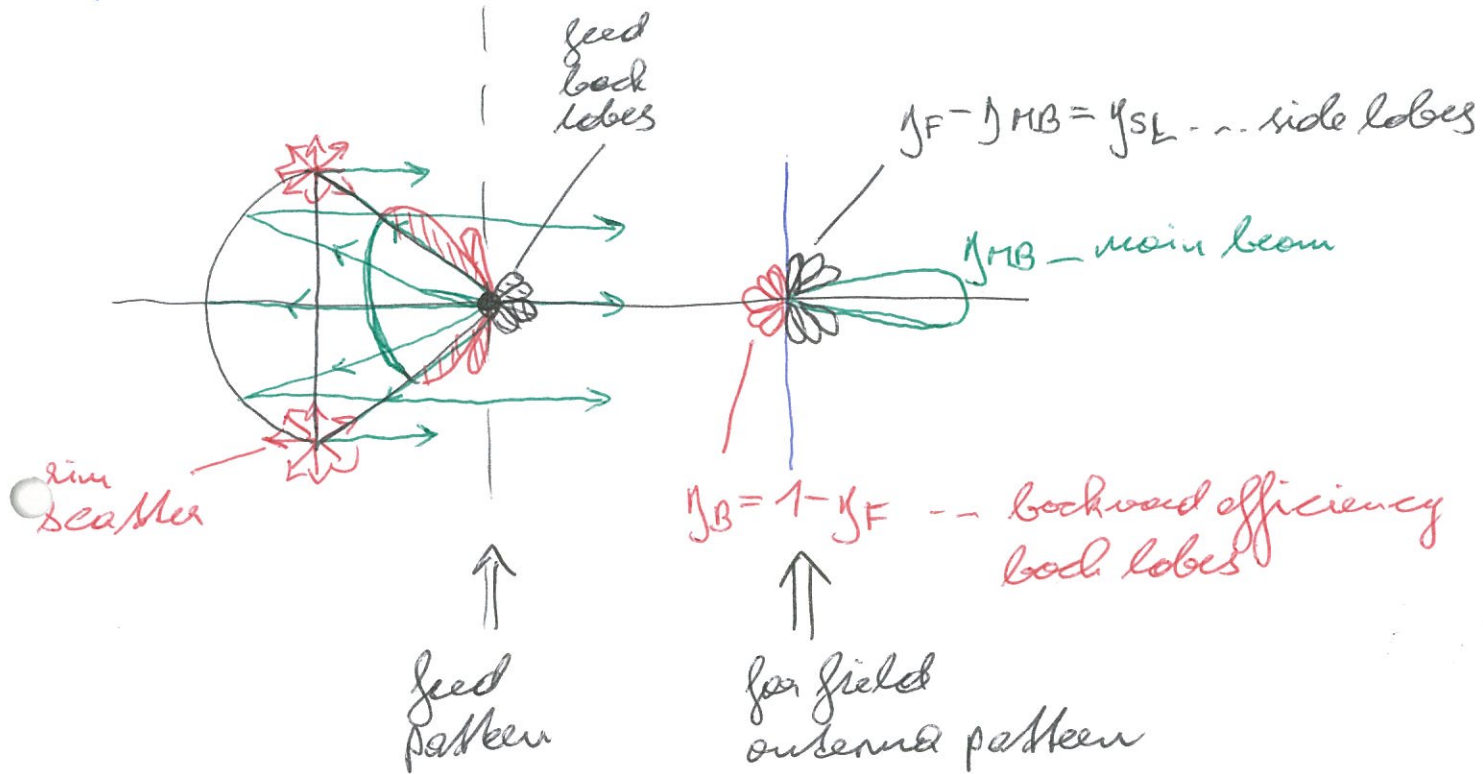 feed
back
lobes
ηF - ηMB = ηSL ... side lobes
ηMB _ main beam
rim
scatter
ηB = 1 - ηF -- backward efficiency
back lobes
feed
pattern
far field
antenna pattern